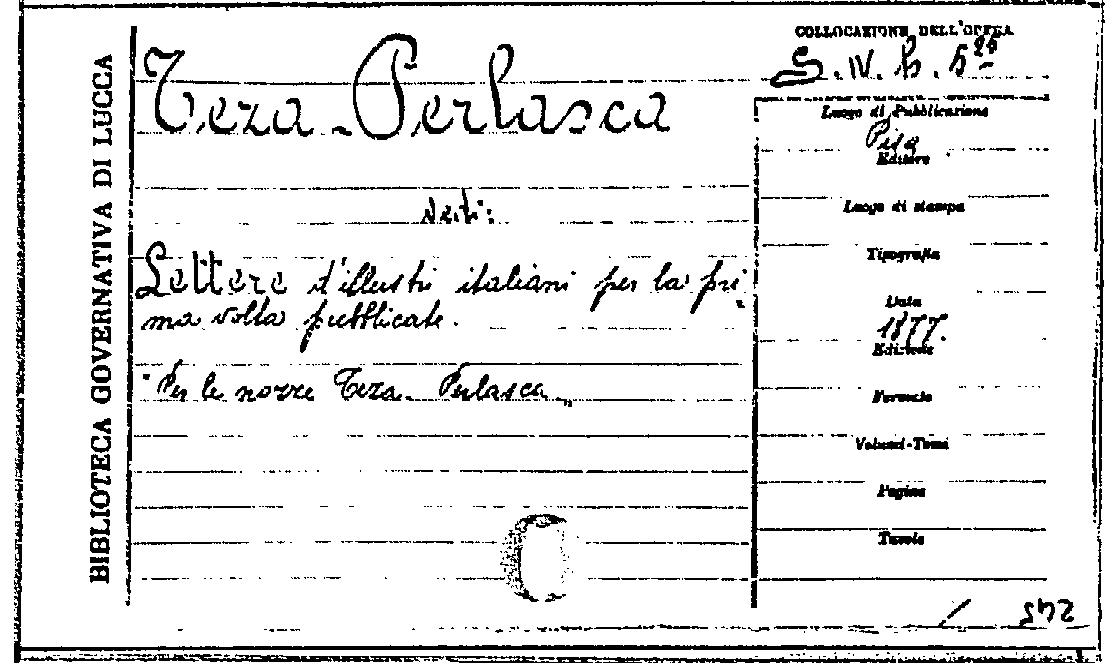 BIBLIOTECA GOVERNATIVA DI LUCCA
Teza - Perlasca
Vedi:
Lettere d'illustri italiani per la pri-
ma volta pubblicate.
"Per le nozze Teza - Perlasca„
COLLOCAZIONE DELL'OPERA
S. IV. b. 5
Luogo di Pubblicazione
Pisa
Editore
Luogo di stampa
Tipografia
Data
1877.
Edizione
Formato
Volumi-Tomi
Pagine
Tavole